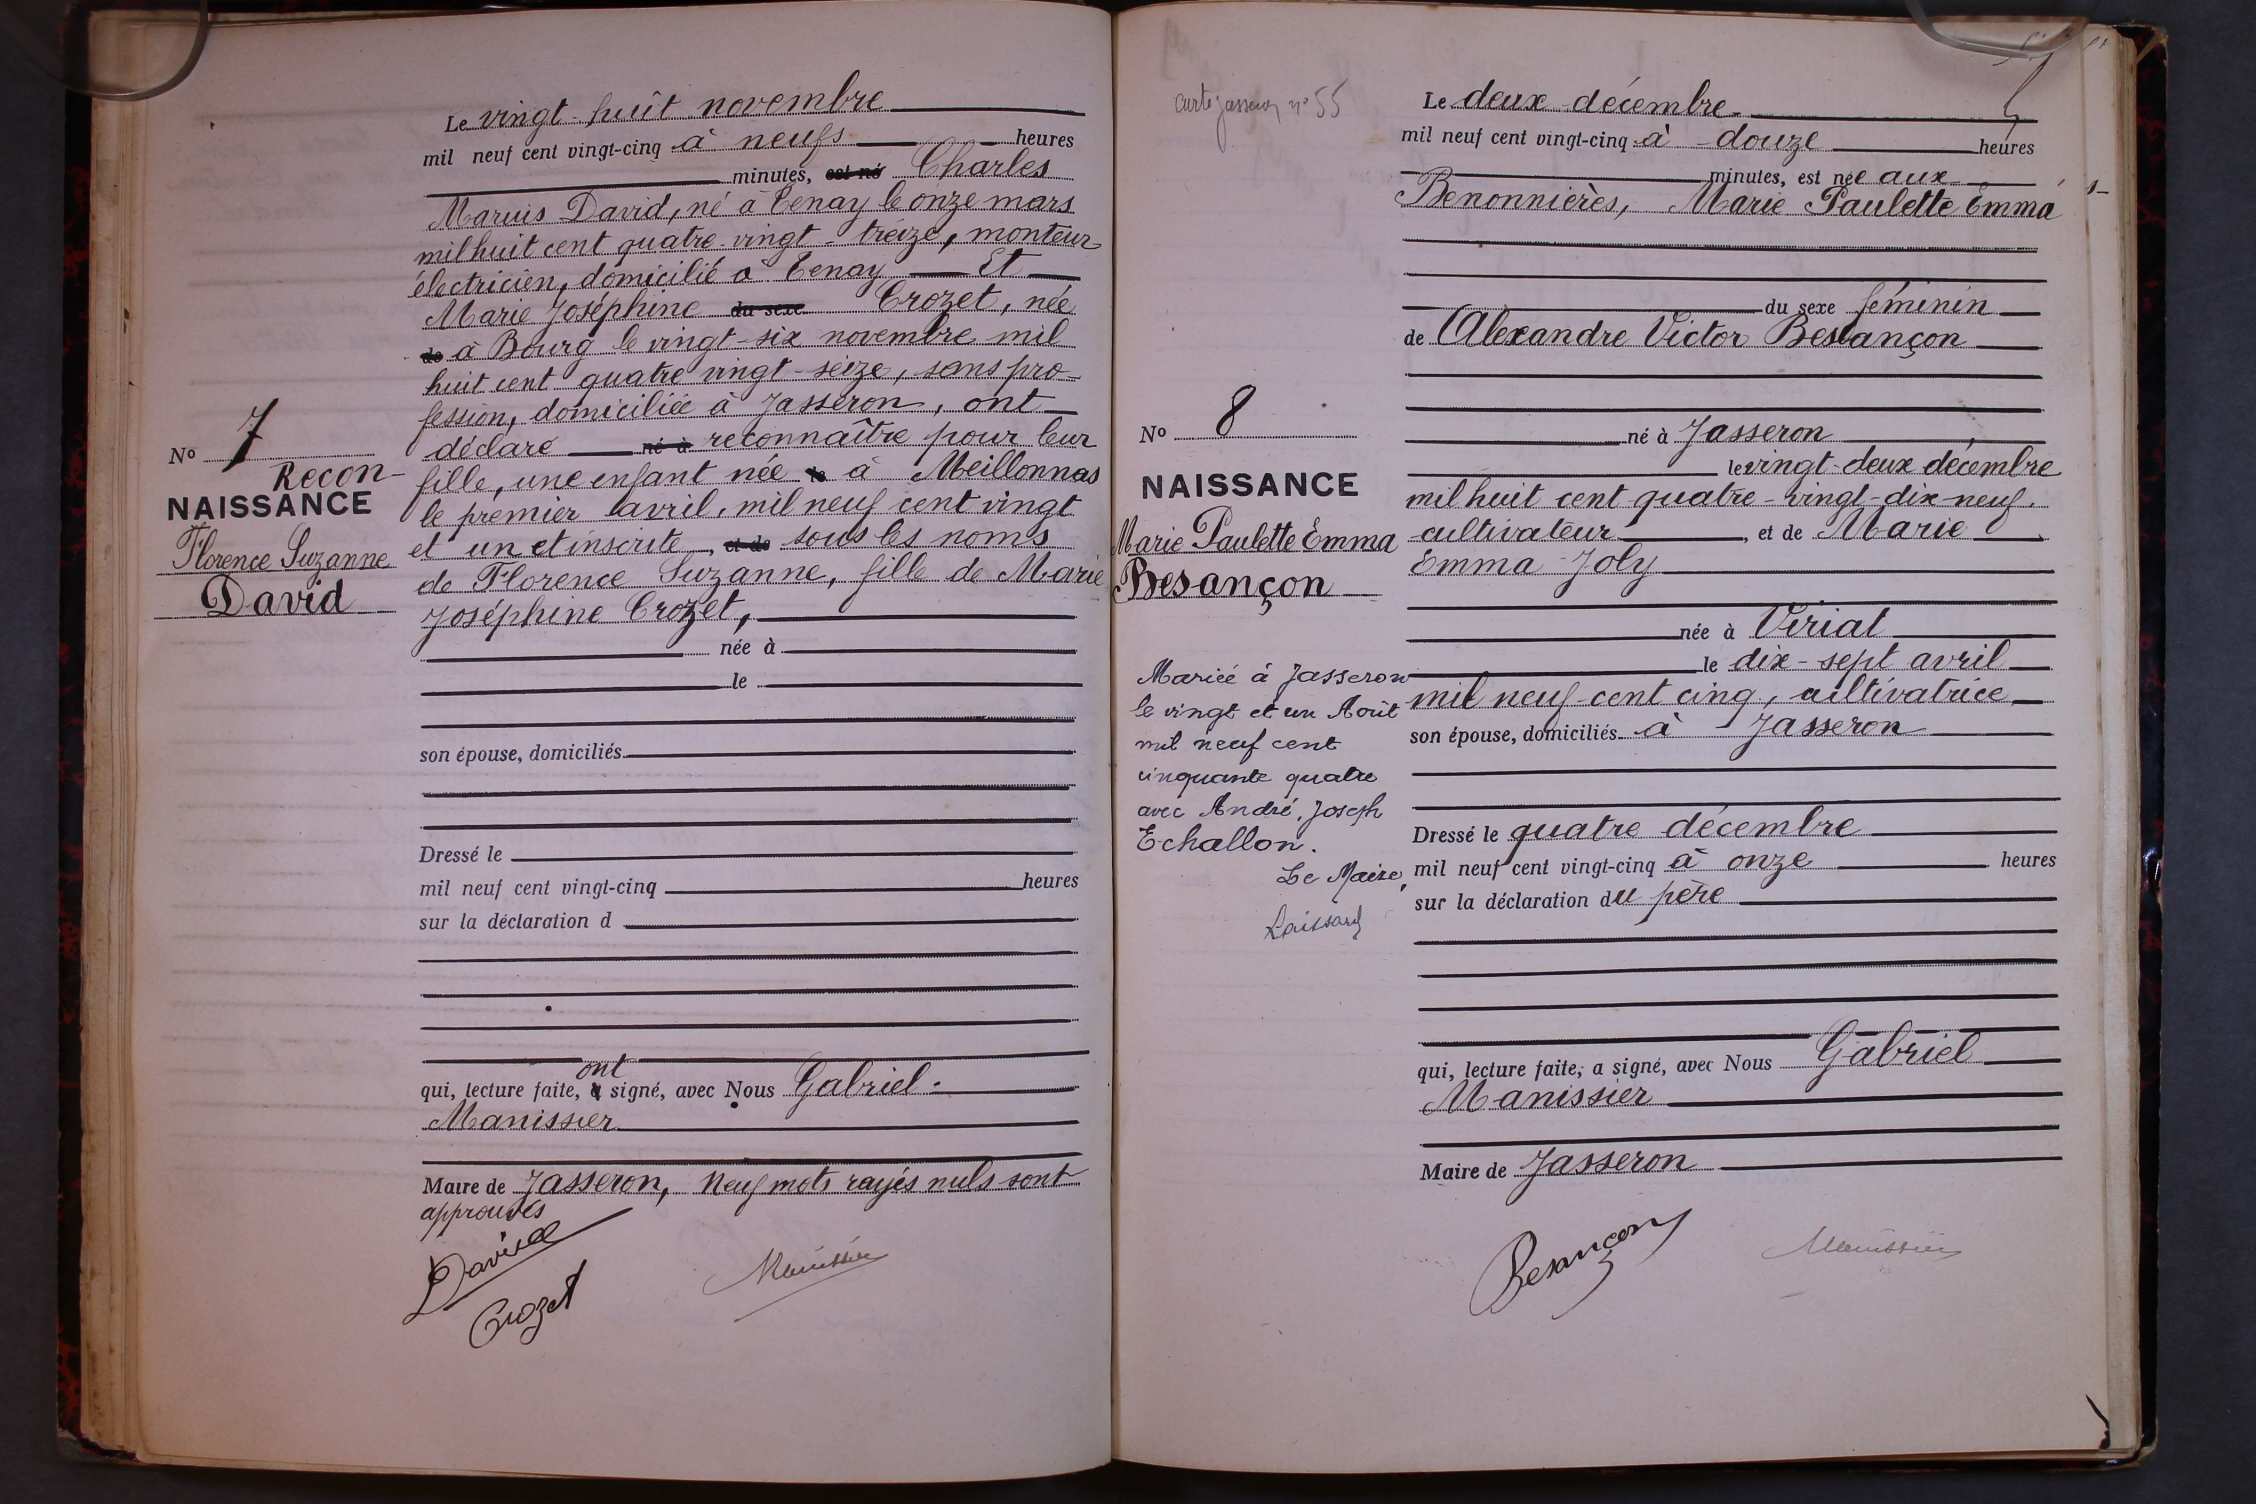 Le vingt-huit novembre
mil neuf cent vingt-cinq à neufs heures
minutes, est né Charles
Maruis David, né à Tenay le onze mars
mil huit cent quatre-vingt-treize, monteur
électricien, domicilié à Tenay Et
Marie Joséphine du sexe Crozet, née
de à Bourg le vingt-six novembre mil
huit cent quatre vingt-seize, sans pro-
fession, domiciliée à Jasseron, ont
déclaré né à reconnaître pour leur
fille, une enfant née le à Meillonnas
le premier avril, mil neuf cent vingt
et un et inscrite, et de sous les noms
de Florence Suzanne, fille de Marie
Joséphine Crozet,
née à
le
son épouse, domiciliés
Dressé le
mil neuf cent vingt-cinq heures
sur la déclaration d
ont
qui, lecture faite, a signé, avec Nous Gabriel
Manissier
Maire de Jasseron, Neuf mots rayés nuls sont
approuvés
David
Crozet
Manissier
No 7
Recon-
NAISSANCE
Florence Suzanne
David
carte jasseron n° 55
No 8
NAISSANCE
Marie Paulette Emma
Besançon
Mariée à Jasseron
le vingt et un Août
mil neuf cent
cinquante quatre
avec André, Joseph
Echallon.
Le Maire,
Le deux décembre
mil neuf cent vingt-cinq à douze heures
minutes, est née aux
Benonnières, Marie Paulette Emma
du sexe féminin
de Alexandre Victor Besançon
né à Jasseron
le vingt-deux décembre
mil huit cent quatre-vingt-dix-neuf.
cultivateur, et de Marie
Emma Joly
née à Viriat
le dix-sept avril
mil neuf-cent cinq, cultivatrice,
son épouse, domiciliés à Jasseron
Dressé le quatre décembre
mil neuf cent vingt-cinq à onze heures
sur la déclaration du père
qui, lecture faite, a signé, avec Nous Gabriel
Manissier
Maire de Jasseron
Besançon
Manissier